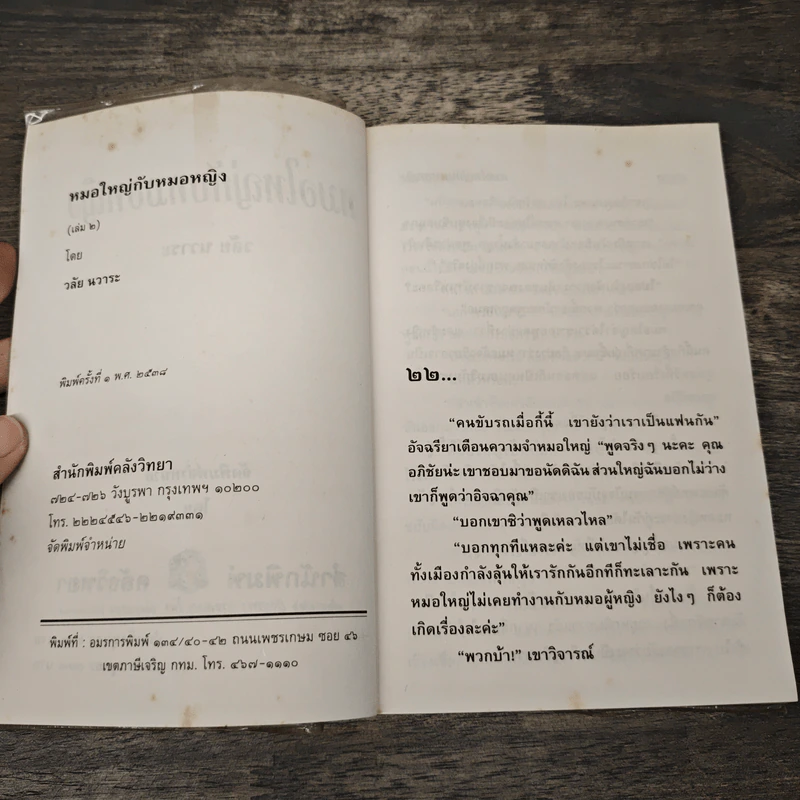 หมอใหญ่กับหมอหญิง
(เล่ม ๒)
โดย
วลัย นวาระ
พิมพ์ครั้งที่ ๑ พ.ศ. ๒๕๓๘
สำนักพิมพ์คลังวิทยา
๗๒๔-๗๒๖ วังบูรพา กรุงเทพฯ ๑๐๒๐๐
โทร. ๒๒๒๔๕๔๖-๒๒๑๙๓๓๑
จัดพิมพ์จำหน่าย
พิมพ์ที่ : อมรการพิมพ์ ๑๓๔/๔๐-๔๒ ถนนเพชรเกษม ซอย ๔๖
เขตภาษีเจริญ กทม. โทร. ๔๖๗-๑๑๑๐
๒๒...
“คนขับรถเมื่อกี้นี้ เขายังว่าเราเป็นแฟนกัน”
อัจฉรียาเตือนความจำหมอใหญ่ “พูดจริงๆ นะคะ คุณ
อภิชัยน่ะ เขาชอบมาขอนัดดิฉัน ส่วนใหญ่ฉันบอกไม่ว่าง
เขาก็พูดว่าอิจฉาคุณ”
“บอกเขาซิว่าพูดเหลวไหล”
“บอกทุกทีแหละค่ะ แต่เขาไม่เชื่อ เพราะคน
ทั้งเมืองกำลังลุ้นให้เรารักกันอีกทีก็ทะเลาะกัน เพราะ
หมอใหญ่ไม่เคยทำงานกับหมอผู้หญิง ยังไงๆ ก็ต้อง
เกิดเรื่องละค่ะ”
“พวกบ้า!” เขาวิจารณ์